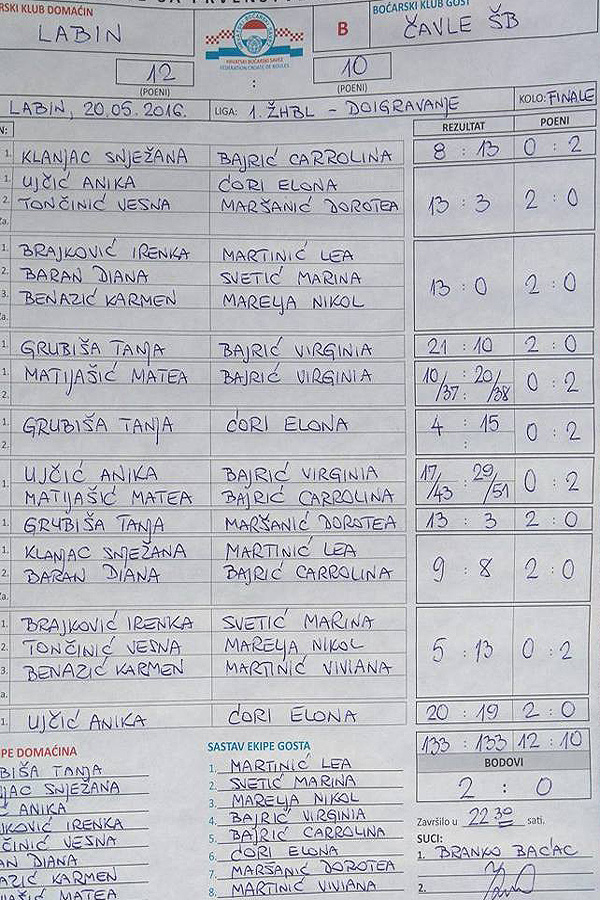 RSKI KLUB DOMAĆIN
LABIN
B
BOĆARSKI KLUB GOST
ČAVLE ŠB
HRVATSKI BOĆARSKI SAVEZ
FEDERATION CROATE DE BOULES
12 : 10
(POENI) (POENI)
LABIN, 20.05.2016. LIGA: 1. ŽHBL - DOIGRAVANJE KOLO: FINALE
N: REZULTAT POENI
1. KLANJAC SNJEŽANA BAJRIĆ CARROLINA 8 : 13 0 : 2
1. UJČIĆ ANIKA ĆORI ELONA
2. TONČINIĆ VESNA MARŠANIĆ DOROTEA 13 : 3 2 : 0
za.
1. BRAJKOVIĆ IRENKA MARTINIĆ LEA
2. BARAN DIANA SVETIĆ MARINA 13 : 0 2 : 0
3. BENAZIĆ KARMEN MARELJA NIKOL
za.
1. GRUBIŠA TANJA BAJRIĆ VIRGINIA 21 : 10 2 : 0
1. MATIJAŠIĆ MATEA BAJRIĆ VIRGINIA 10/37 : 20/38 0 : 2
2.
1. GRUBIŠA TANJA ĆORI ELONA 4 : 15 0 : 2
2. :
1. UJČIĆ ANIKA BAJRIĆ VIRGINIA 17/43 : 29/51 0 : 2
MATIJAŠIĆ MATEA BAJRIĆ CARROLINA
1. GRUBIŠA TANJA MARŠANIĆ DOROTEA 13 : 3 2 : 0
1. KLANJAC SNJEŽANA MARTINIĆ LEA
2. BARAN DIANA BAJRIĆ CARROLINA 9 : 8 2 : 0
za.
1. BRAJKOVIĆ IRENKA SVETIĆ MARINA
2. TONČINIĆ VESNA MARELJA NIKOL 5 : 13 0 : 2
3. BENAZIĆ KARMEN MARTINIĆ VIVIANA
za.
1. UJČIĆ ANIKA ĆORI ELONA 20 : 19 2 : 0
133 : 133 12 : 10
BODOVI
2 : 0
Završilo u 22 30 sati.
SUCI:
1. BRANKO BAĆAC
2.
PE DOMAĆINA
BIŠA TANJA
JAC SNJEŽANA
Ć ANIKA
KOVIĆ IRENKA
ČINIĆ VESNA
AN DIANA
AZIĆ KARMEN
JAŠIĆ MATEA
SASTAV EKIPE GOSTA
1. MARTINIĆ LEA
2. SVETIĆ MARINA
3. MARELJA NIKOL
4. BAJRIĆ VIRGINIA
5. BAJRIĆ CARROLINA
6. ĆORI ELONA
7. MARŠANIĆ DOROTEA
8. MARTINIĆ VIVIANA